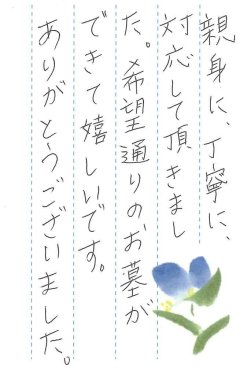 親身に、丁寧に、
対応して頂きまし
た。希望通りのお墓が
できて嬉しいです。
ありがとうございました。